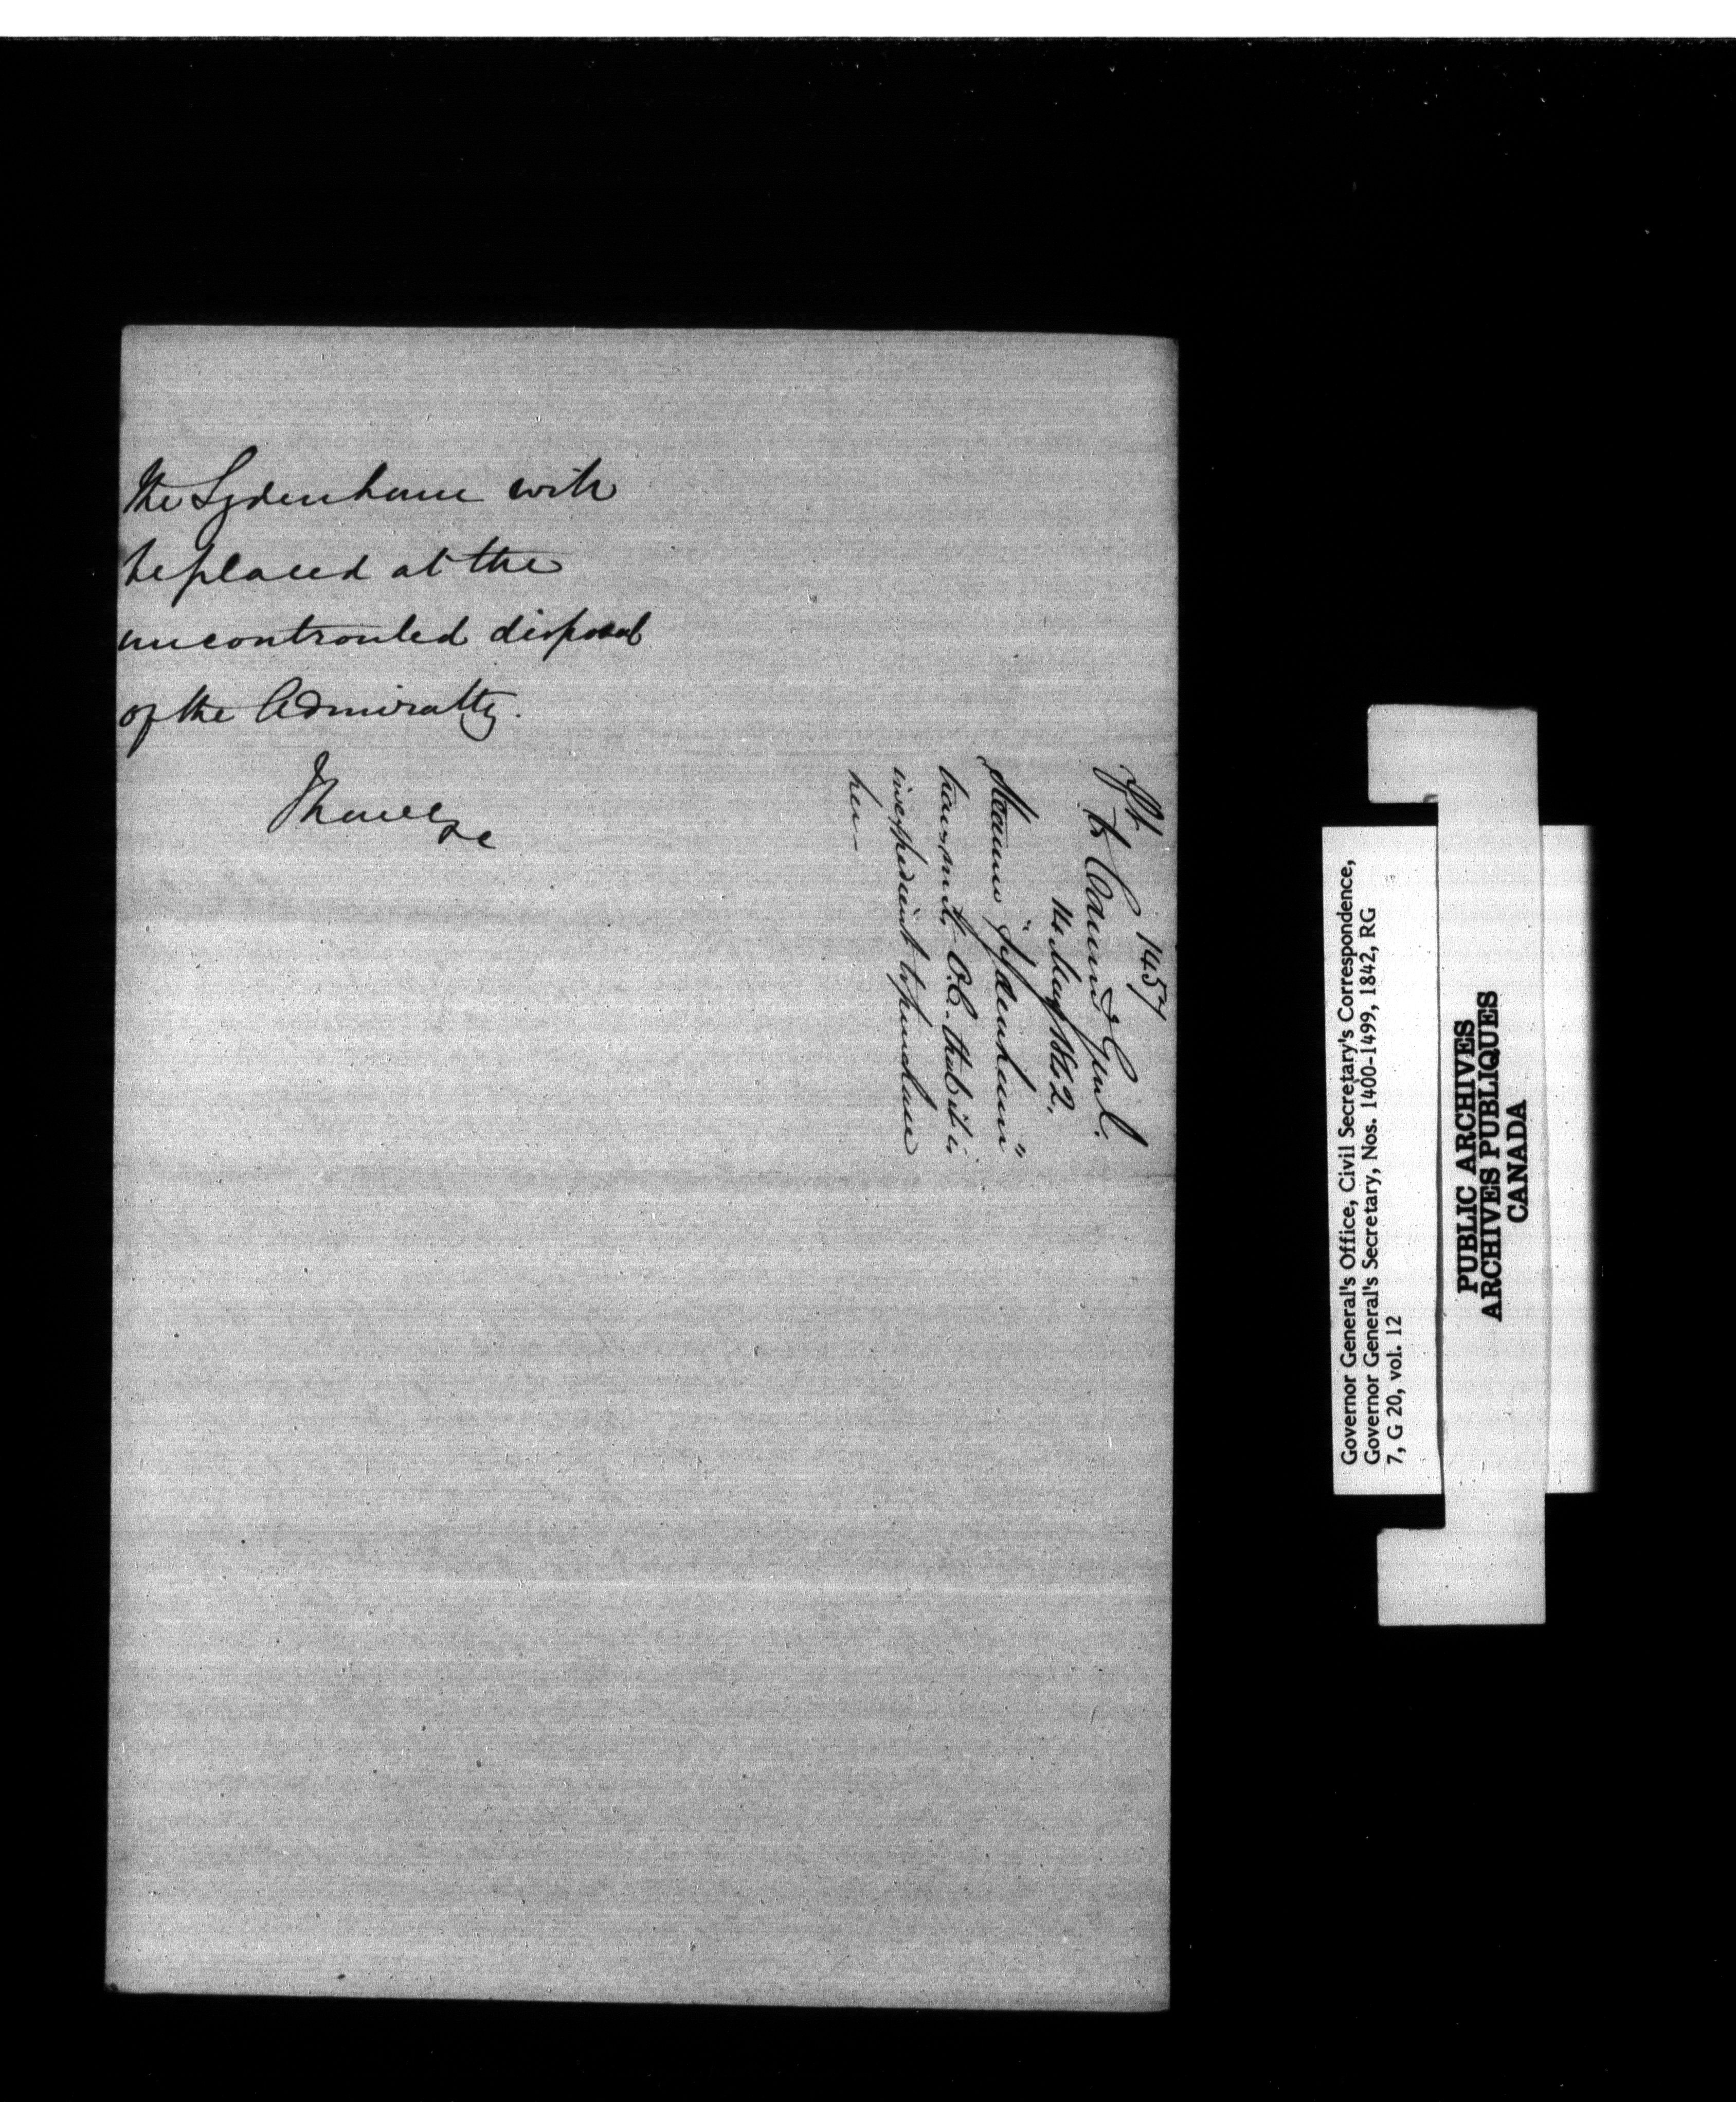 the Sydenham will
be placed at the
uncontrouled disposal
of the Admiralty.
I have &c
1457
Dft.
to Commr Genl.
14 May 1842.
Steamer "Sydenham"
transmits O.C. that it is
inexpedient to purchase
her—
Governor General's Office, Civil Secretary's Correspondence,
Governor General's Secretary, Nos. 1400-1499, 1842, RG
7, G 20, vol. 12
PUBLIC ARCHIVES
ARCHIVES PUBLIQUES
CANADA